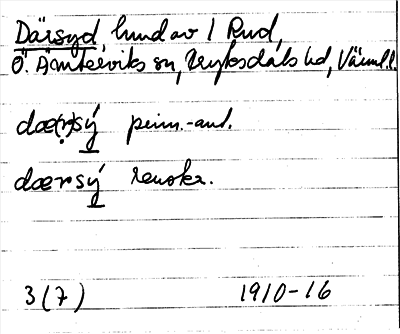 Därsyd, hund av 1 Rud,
Ö. Ämterviks sn, Fryksdals hd, Värml.l.
dæ(r)sý prim.-aut.
dærsý renskr.
3 (7) 1910-16